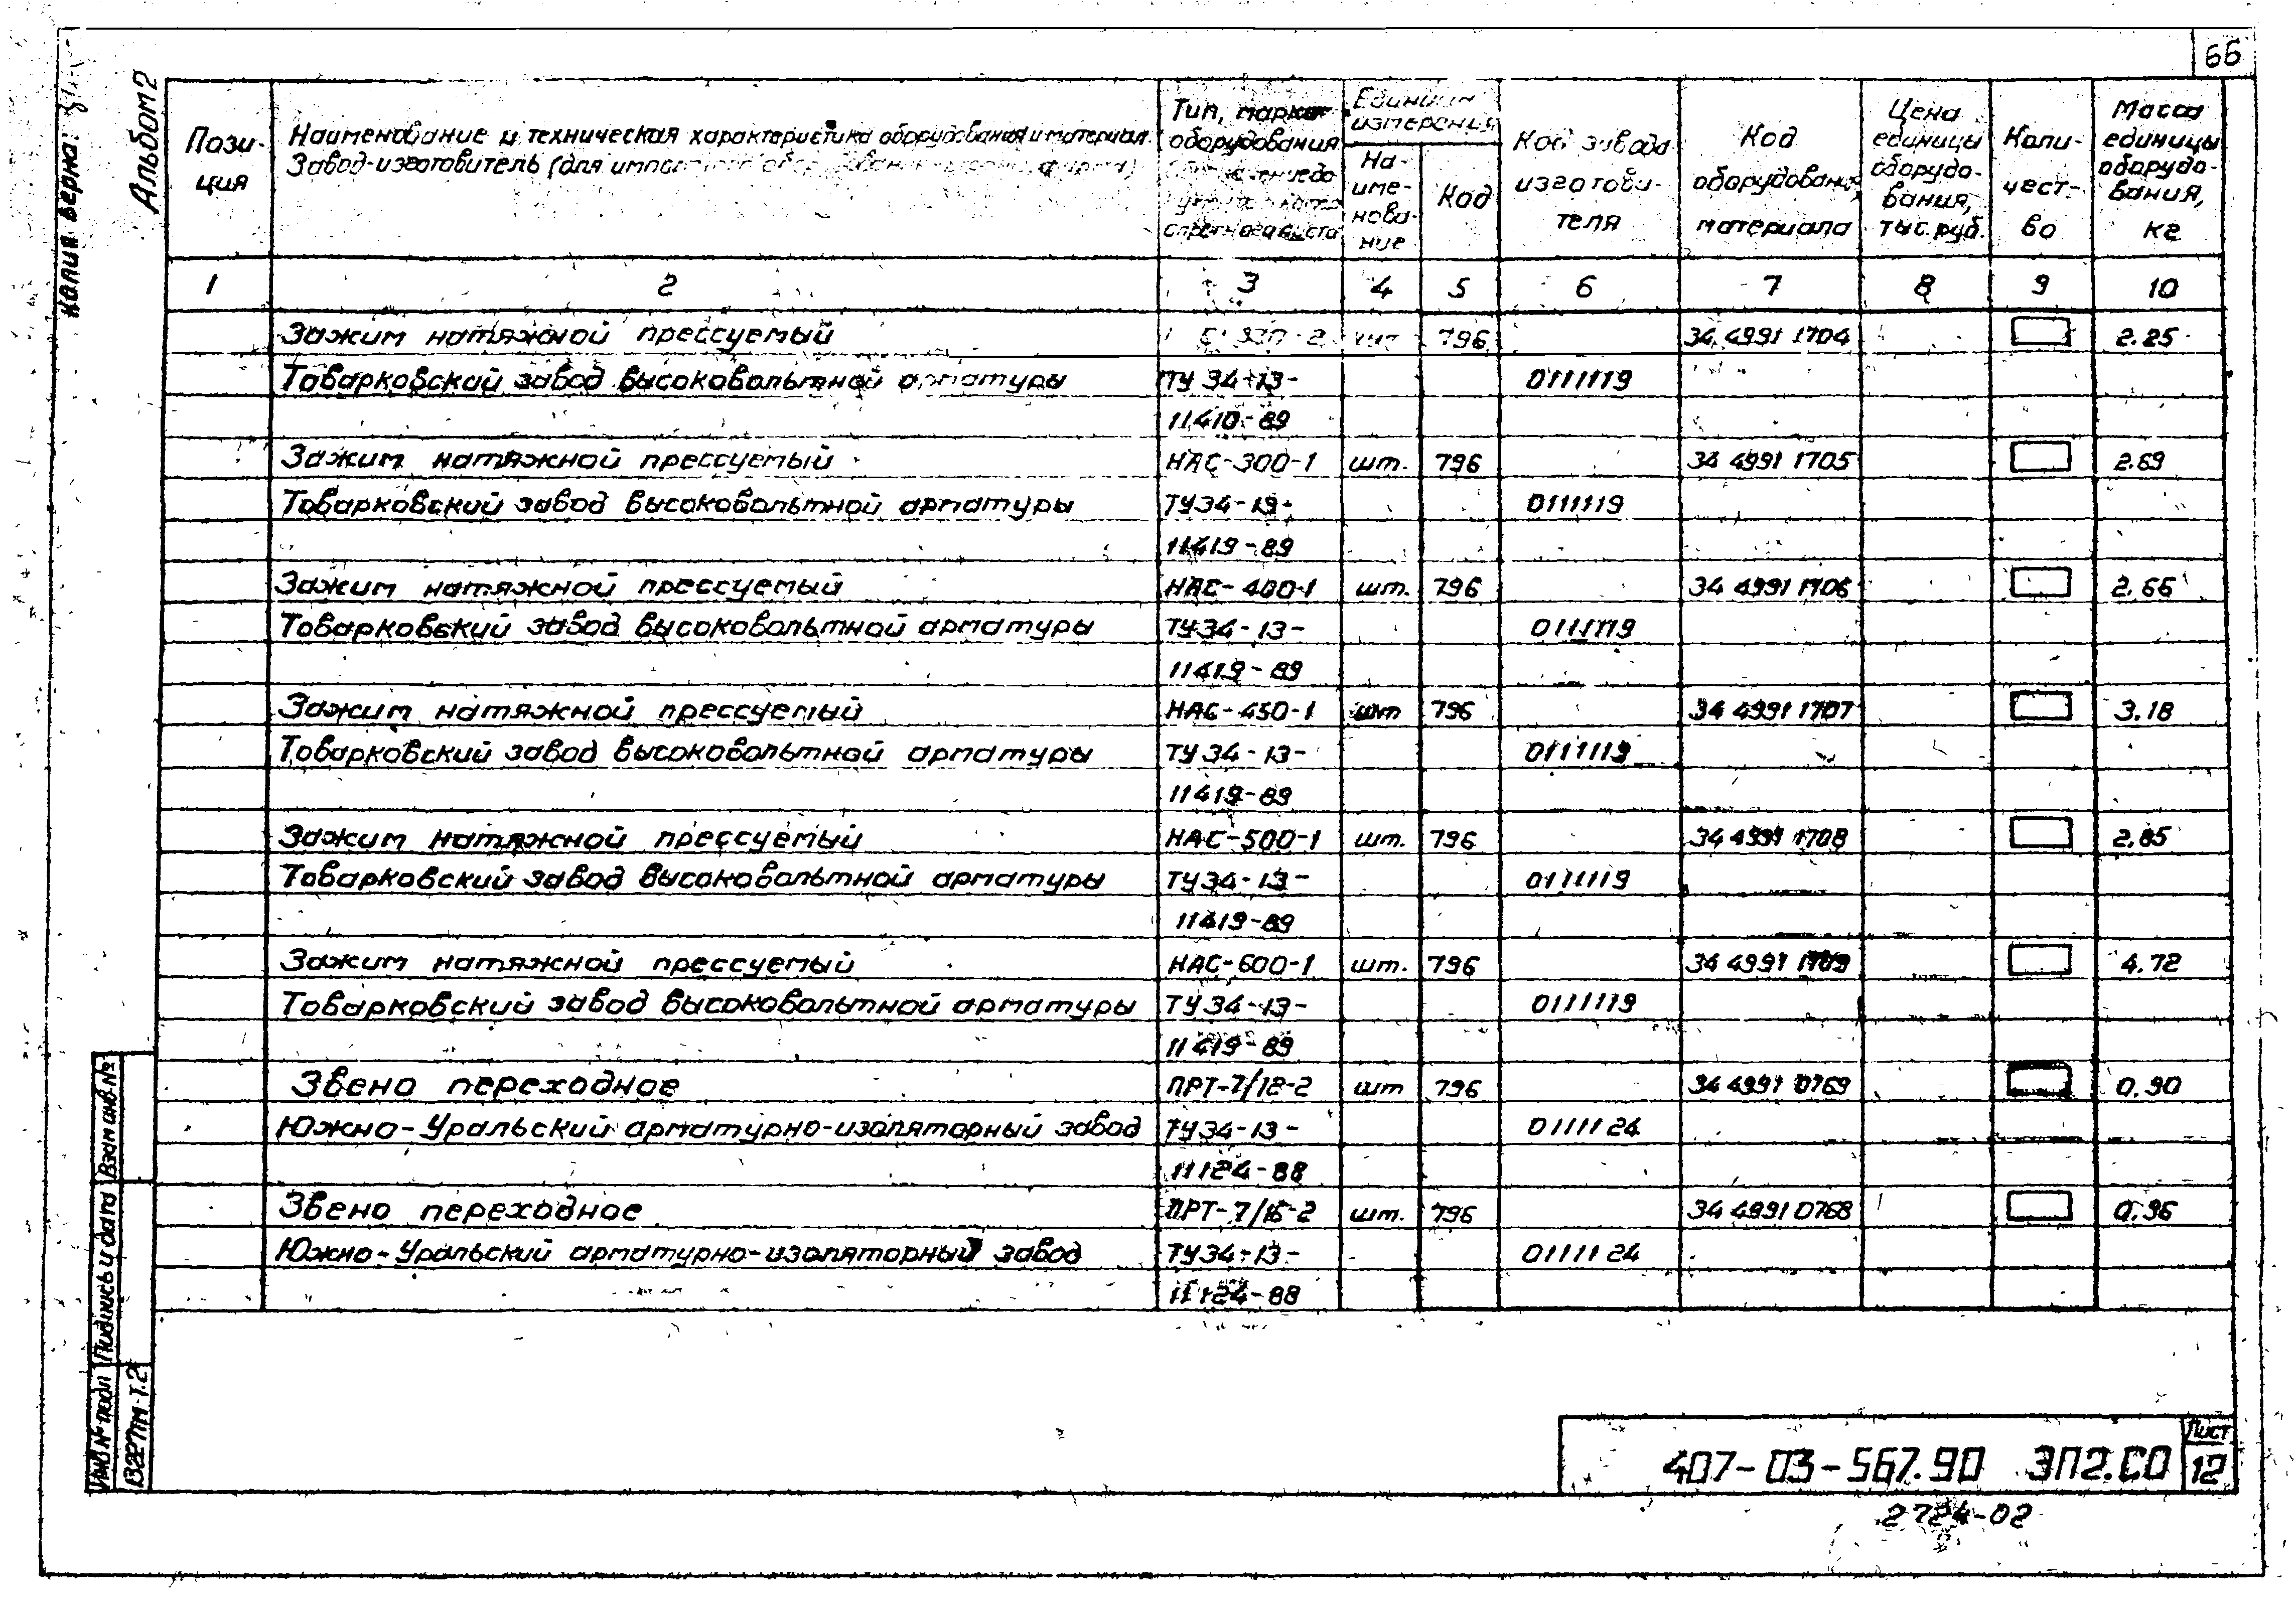 66
Копия верна:
Альбом 2
Пози-
ция
Наименование и техническая характеристика оборудования и материал.
Завод-изготовитель (для
Тип, марка
оборудования
Единица
измерения
На-
име-
нова-
ние
Код
Код завода
изготови-
теля
Код
оборудования,
материала
Цена
единицы
оборудо-
вания,
тыс.руб.
Коли-
чест-
во
Масса
единицы
оборудо-
вания,
кг
1 2 3 4 5 6 7 8 9 10
Зажим натяжной прессуемый шт 796 34 4991 1704 2.25
Товарковский завод высоковольтной арматуры ТУ 34-13- 0111119
11410-89
Зажим натяжной прессуемый НАС-300-1 шт. 796 34 4991 1705 2.69
Товарковский завод высоковольтной арматуры ТУ34-13- 0111119
11419-89
Зажим натяжной прессуемый НАС-400-1 шт. 796 34 4991 1706 2.66
Товарковский завод высоковольтной арматуры ТУ34-13- 0111119
11419-89
Зажим натяжной прессуемый НАС-450-1 шт 796 34 4991 1707 3.18
Товарковский завод высоковольтной арматуры ТУ 34-13- 0111119
11419-89
Зажим натяжной прессуемый НАС-500-1 шт. 796 34 4991 1708 2.85
Товарковский завод высоковольтной арматуры ТУ34-13- 0111119
11419-89
Зажим натяжной прессуемый НАС-600-1 шт. 796 34 4991 1709 4.72
Товарковский завод высоковольтной арматуры ТУ 34-13- 0111119
11419-89
Звено переходное ПРТ-7/12-2 шт 796 34 4991 0769 0.90
Южно-Уральский арматурно-изоляторный завод ТУ34-13- 0111124
11124-88
Звено переходное ПРТ-7/16-2 шт. 796 34 4991 0768 0.96
Южно-Уральский арматурно-изоляторный завод ТУ34-13- 0111124
11124-88
Взам инв №
Подпись и дата
Инв № подл
13227тм-т.2
407-03-567.90 ЭП2.СО
Лист
12
2724-02